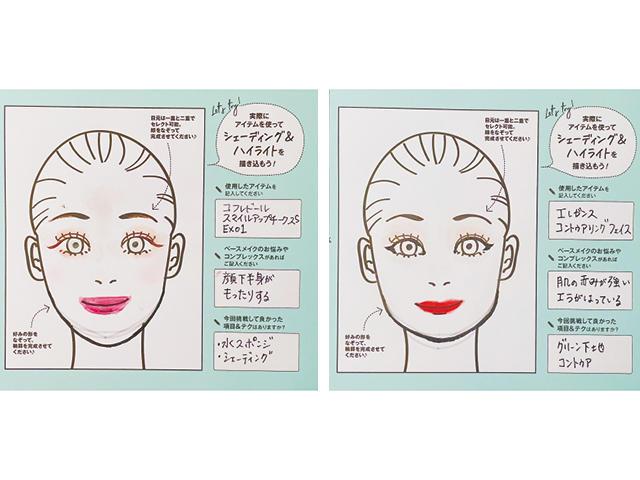 Let's try!
実際に
アイテムを使って
シェーディング&
ハイライトを
描き込もう!
目元は一重と二重で
セレクト可能。
線をなぞって
完成させてください♪
使用したアイテムを
記入してください
コフレドール
スマイルアップチークスS
EX01
ベースメイクのお悩みや
コンプレックスがあれば
ご記入ください
顔下半身が
もったりする
今回挑戦して良かった
項目&テクはありますか?
・水くスポンジ
・シェーディング
好みの形を
なぞって、
輪郭を完成させて
ください♪
Let's try!
実際に
アイテムを使って
シェーディング&
ハイライトを
描き込もう!
目元は一重と二重で
セレクト可能。
線をなぞって
完成させてください♪
使用したアイテムを
記入してください
エレガンス
コントゥアリング フェイス
ベースメイクのお悩みや
コンプレックスがあれば
ご記入ください
肌の赤みが強い
エラがはっている
今回挑戦して良かった
項目&テクはありますか?
グリーン下地
コントゥア
好みの形を
なぞって、
輪郭を完成させて
ください♪